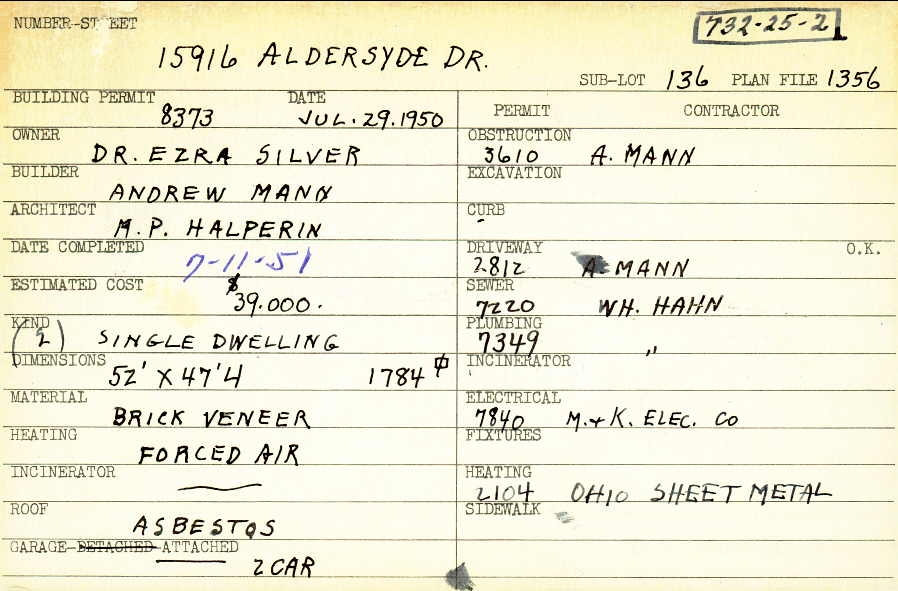 NUMBER-STREET
732-25-2
15916 ALDERSYDE DR.
SUB-LOT 136 PLAN FILE 1356
BUILDING PERMIT 8373 DATE JUL. 29. 1950
OWNER DR. EZRA SILVER
BUILDER ANDREW MANN
ARCHITECT M.P. HALPERIN
DATE COMPLETED 7-11-51
ESTIMATED COST $39.000.
KIND (2) SINGLE DWELLING
DIMENSIONS 52' X 47'4 1784
MATERIAL BRICK VENEER
HEATING FORCED AIR
INCINERATOR —
ROOF ASBESTOS
GARAGE-DETACHED-ATTACHED 2 CAR
PERMIT CONTRACTOR
OBSTRUCTION 3610 A. MANN
EXCAVATION
CURB
DRIVEWAY O.K.
2812 A. MANN
SEWER 7220 WH. HAHN
PLUMBING 7349 "
INCINERATOR
ELECTRICAL 7840 M.+K. ELEC. CO
FIXTURES
HEATING 2104 OHIO SHEET METAL
SIDEWALK